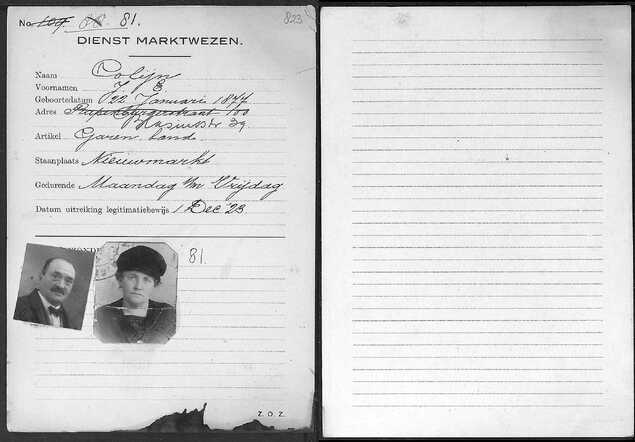 No. 109 88. 81.
823
DIENST MARKTWEZEN.
Naam Colijn
Voornamen J E
Geboortedatum 22 Januari 1877
Adres 100
str 39
Artikel Garen band
Staanplaats Nieuwmarkt
Gedurende Maandag t/m Vrijdag
Datum uitreiking legitimatiebewijs 1 Dec 23
81.
Z. O. Z.